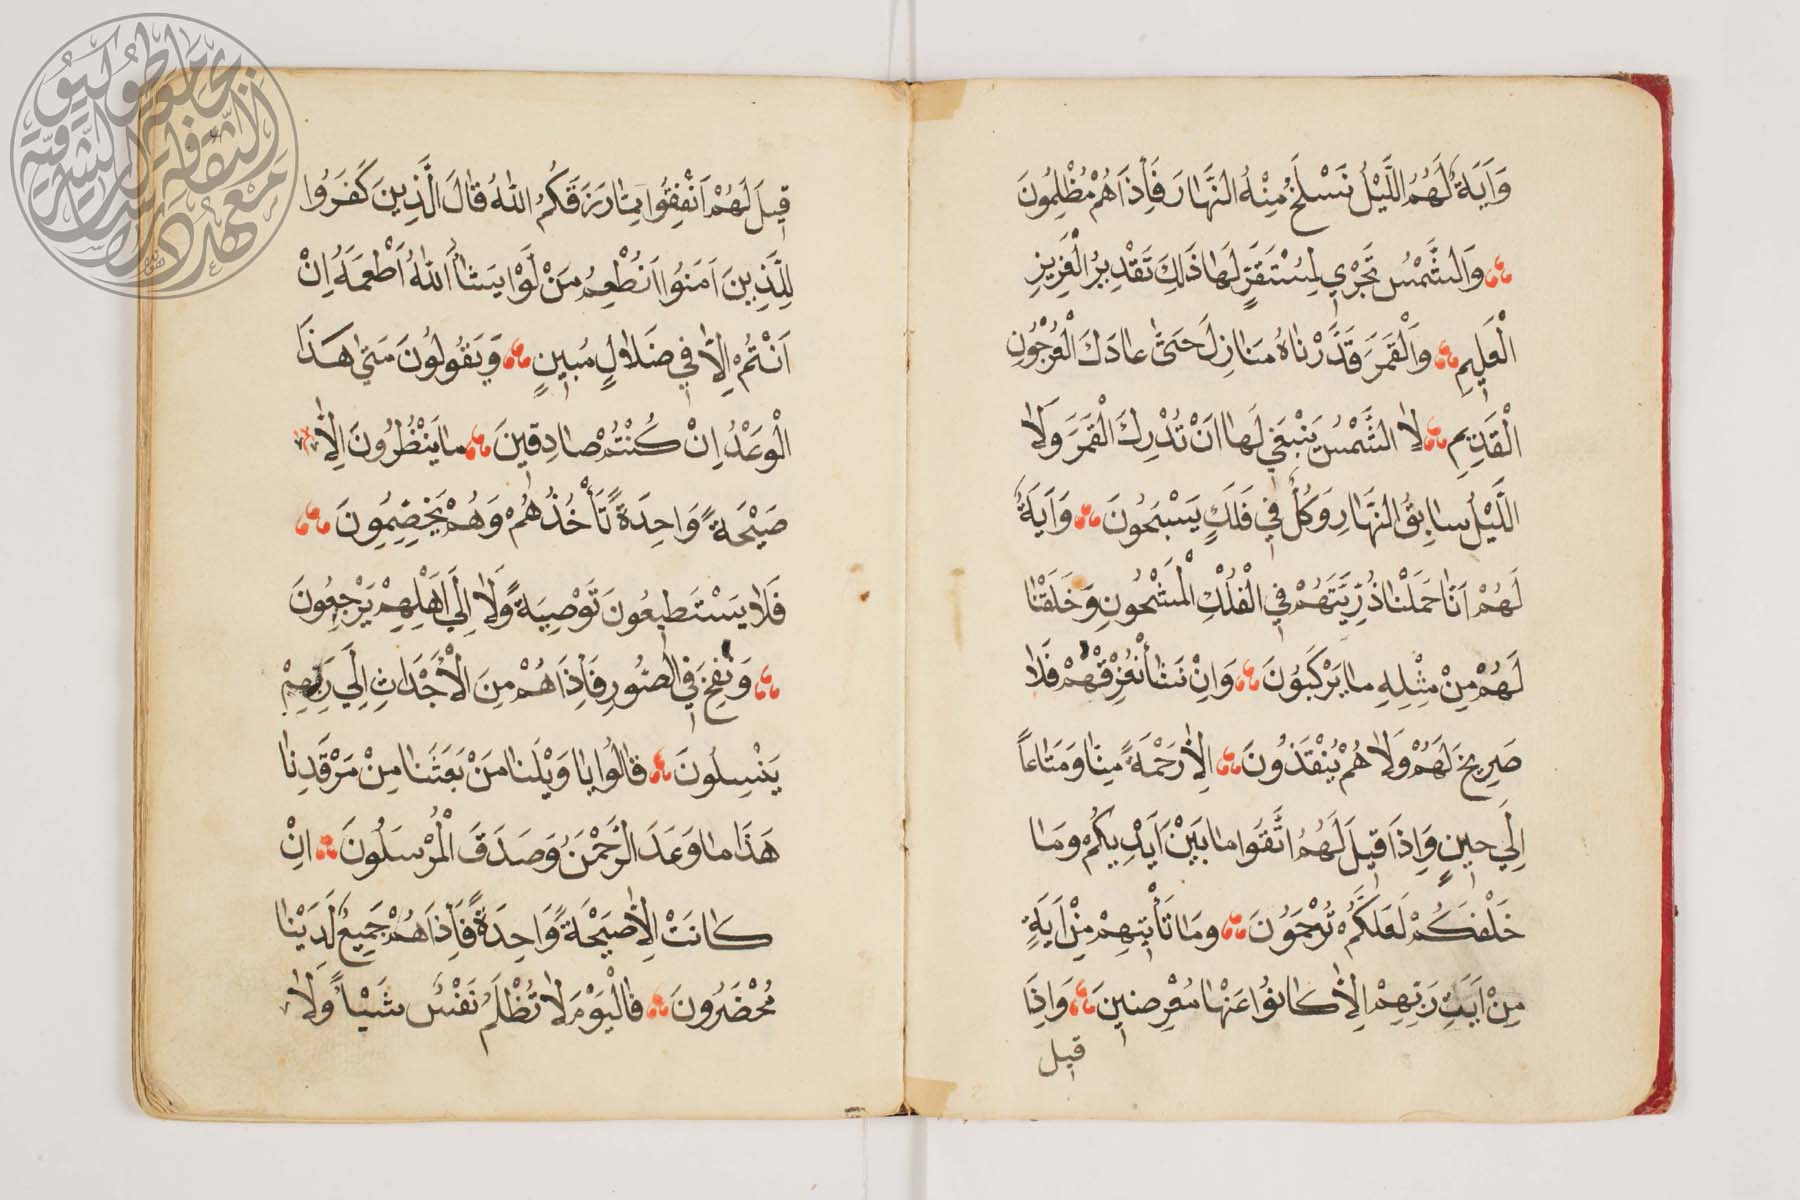 وَاَيَةٌ لَهُمُ اللَّيْلُ نَسْلَخُ مِنْهُ النَّهَارَ فَاِذَا هُمْ مُظْلِمُونَ
وَالشَّمْسُ تَجْرِي لِمُسْتَقَرٍّ لَهَا ذَلِكَ تَقْدِيرُ الْعَزِيزِ
الْعَلِيمِ وَالْقَمَرَ قَدَّرْنَاهُ مَنَازِلَ حَتَّى عَادَ كَالْعُرْجُونِ
الْقَدِيمِ لاَ الشَّمْسُ يَنْبَغِي لَهَا اَنْ تُدْرِكَ الْقَمَرَ وَلاَ
اللَّيْلُ سَابِقُ النَّهَارِ وَكُلٌّ فِي فَلَكٍ يَسْبَحُونَ وَاَيَةٌ
لَهُمْ اَنَّا حَمَلْنَا ذُرِّيَّتَهُمْ فِي الْفُلْكِ الْمَشْحُونِ وَخَلَقْنَا
لَهُمْ مِنْ مِثْلِهِ مَا يَرْكَبُونَ وَاِنْ نَشَأْ نُغْرِقْهُمْ فَلاَ
صَرِيخَ لَهُمْ وَلاَ هُمْ يُنْقَذُونَ اِلاَّ رَحْمَةً مِنَّا وَمَتَاعًا
اِلَى حِينٍ وَاِذَا قِيلَ لَهُمُ اتَّقُوا مَا بَيْنَ اَيْدِيكُمْ وَمَا
خَلْفَكُمْ لَعَلَّكُمْ تُرْحَمُونَ وَمَا تَأْتِيهِمْ مِنْ اَيَةٍ
مِنْ اَيَاتِ رَبِّهِمْ اِلاَّ كَانُوا عَنْهَا مُعْرِضِينَ وَاِذَا
قيل
قِيلَ لَهُمْ اَنْفِقُوا مِمَّا رَزَقَكُمُ اللهُ قَالَ الَّذِينَ كَفَرُوا
لِلَّذِينَ اَمَنُوا اَنُطْعِمُ مَنْ لَوْ يَشَاءُ اللهُ اَطْعَمَهُ اِنْ
اَنْتُمْ اِلاَّ فِي ضَلاَلٍ مُبِينٍ وَيَقُولُونَ مَتَى هَذَا
الْوَعْدُ اِنْ كُنْتُمْ صَادِقِينَ مَا يَنْظُرُونَ اِلاَّ
صَيْحَةً وَاحِدَةً تَأْخُذُهُمْ وَهُمْ يَخِصِّمُونَ
فَلاَ يَسْتَطِيعُونَ تَوْصِيَةً وَلاَ اِلَى اَهْلِهِمْ يَرْجِعُونَ
وَنُفِخَ فِي الصُّورِ فَاِذَا هُمْ مِنَ الْاَجْدَاثِ اِلَى رَبِّهِمْ
يَنْسِلُونَ قَالُوا يَا وَيْلَنَا مَنْ بَعَثَنَا مِنْ مَرْقَدِنَا
هَذَا مَا وَعَدَ الرَّحْمَنُ وَصَدَقَ الْمُرْسَلُونَ اِنْ
كَانَتْ اِلاَّ صَيْحَةً وَاحِدَةً فَاِذَا هُمْ جَمِيعٌ لَدَيْنَا
مُحْضَرُونَ فَالْيَوْمَ لاَ تُظْلَمُ نَفْسٌ شَيْئًا وَلاَ